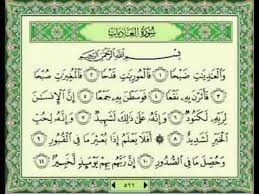 سُورَةُ العَادِيَاتِ
بِسْمِ ٱللَّهِ ٱلرَّحْمَٰنِ ٱلرَّحِيمِ
وَٱلْعَٰدِيَٰتِ ضَبْحًا ١ فَٱلْمُورِيَٰتِ قَدْحًا ٢ فَٱلْمُغِيرَٰتِ صُبْحًا
٣ فَأَثَرْنَ بِهِۦ نَقْعًا ٤ فَوَسَطْنَ بِهِۦ جَمْعًا ٥ إِنَّ ٱلْإِنسَٰنَ
لِرَبِّهِۦ لَكَنُودٌ ٦ وَإِنَّهُۥ عَلَىٰ ذَٰلِكَ لَشَهِيدٌ ٧ وَإِنَّهُۥ لِحُبِّ
ٱلْخَيْرِ لَشَدِيدٌ ٨ أَفَلَا يَعْلَمُ إِذَا بُعْثِرَ مَا فِى ٱلْقُبُورِ ٩
وَحُصِّلَ مَا فِى ٱلصُّدُورِ ١٠ إِنَّ رَبَّهُم بِهِمْ يَوْمَئِذٍ لَّخَبِيرٌۢ ١١